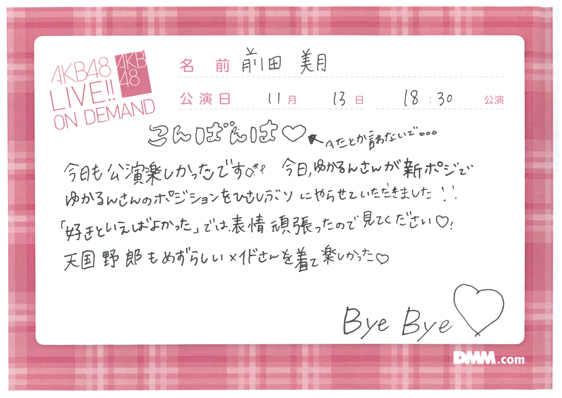 AKB48
LIVE!!
ON DEMAND
AKB
48
名 前 前田 美月
公演日 11月 13日 18:30 公演
こんばんは♡ ←へたとか言わないで…
今日も公演楽しかったです 今日、ゆかるんさんが新ポジで
ゆかるんさんのポジションをひさしぶりにやらせていただきました!!
「好きといえばよかった」では表情頑張ったので見てください♡!
天国野郎もめずらしいメイドさんを着て楽しかった♡
Bye Bye ♡
DMM.com